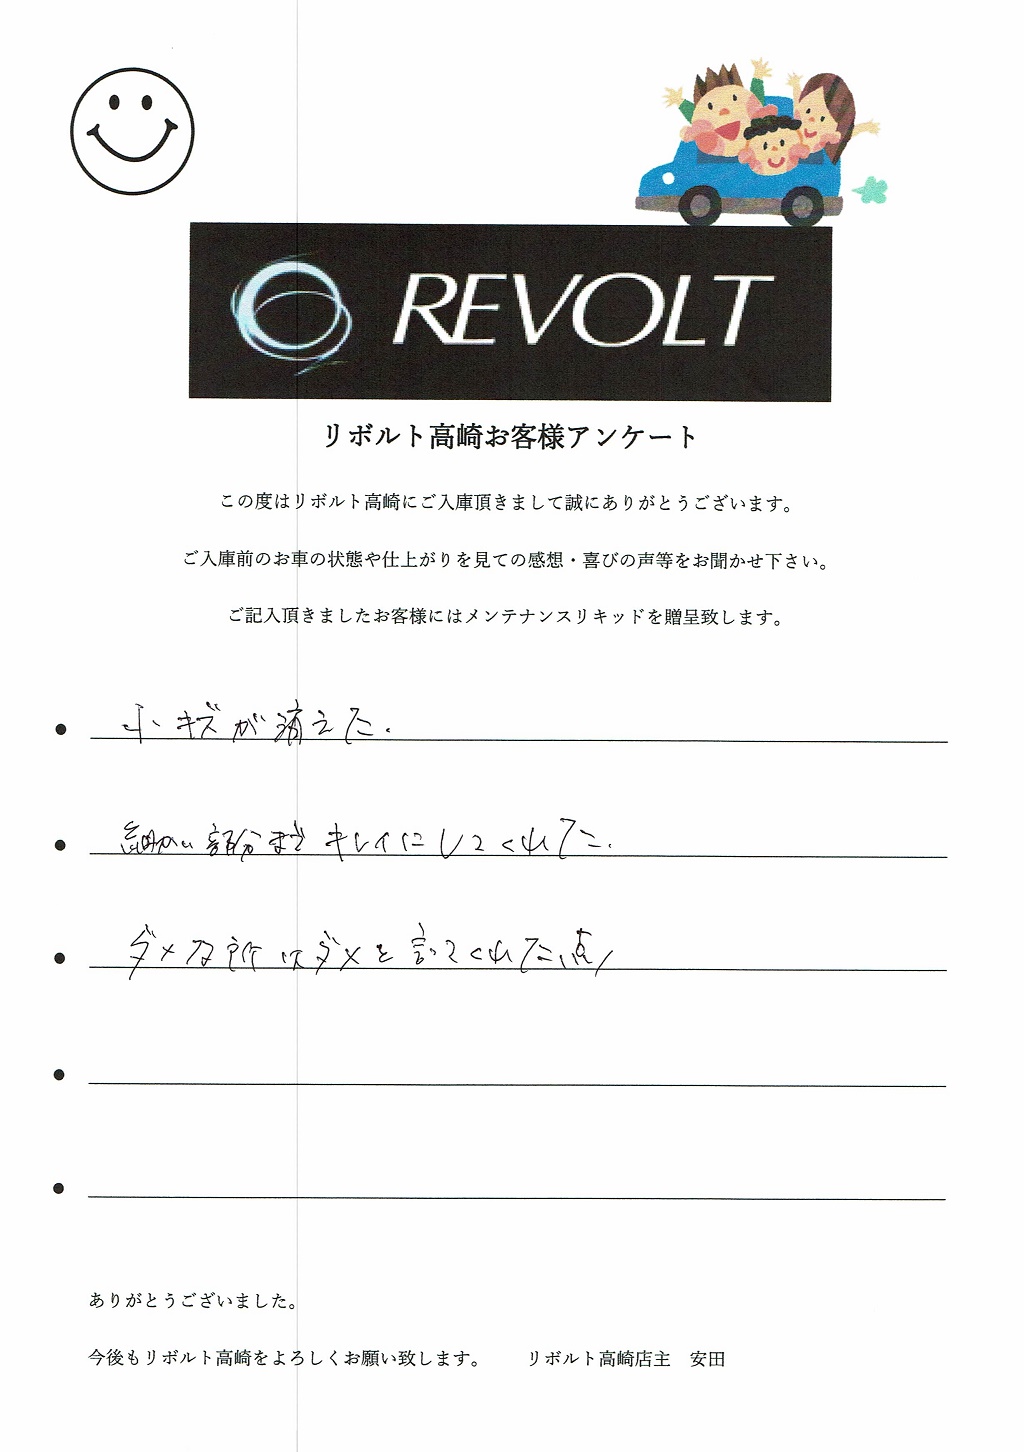 REVOLT
リボルト高崎お客様アンケート
この度はリボルト高崎にご入庫頂きまして誠にありがとうございます。
ご入庫前のお車の状態や仕上がりを見ての感想・喜びの声等をお聞かせ下さい。
ご記入頂きましたお客様にはメンテナンスリキッドを贈呈致します。
● 小キズが消えた.
● 細かい部分まで キレイにしてくれた.
● ダメな所はダメと言ってくれた点
●
●
ありがとうございました。
今後もリボルト高崎をよろしくお願い致します。 リボルト高崎店主 安田